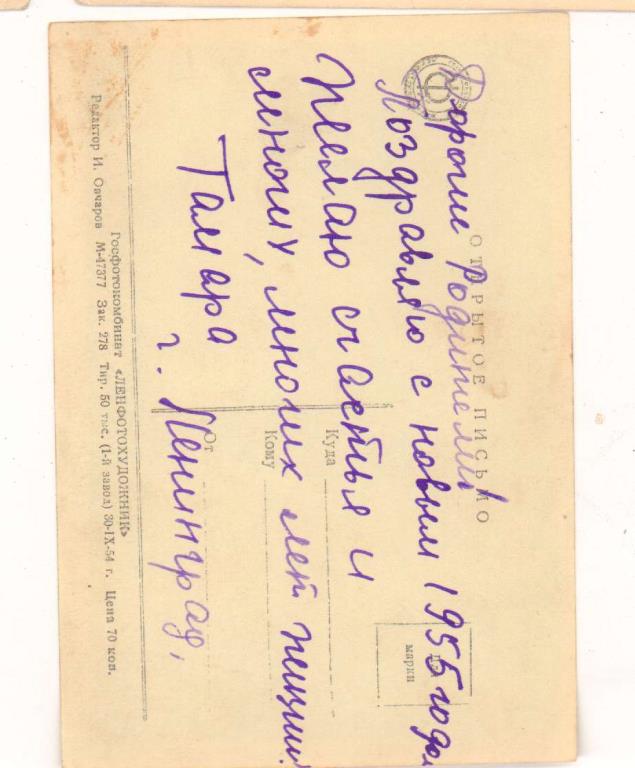 ОТКРЫТОЕ ПИСЬМО
Дорогие Родители!
Поздравляю с новым 1955 годом
Желаю счастья и
многих, многих лет жизни!
Тамара
г. Ленинград,
марки
Куда
Кому
От
Госфотокомбинат «ЛЕНФОТОХУДОЖНИК»
Редактор И. Овчаров М-47377 Зак. 278 Тир. 50 тыс. (1-й завод) 30-IX-54 г. Цена 70 коп.